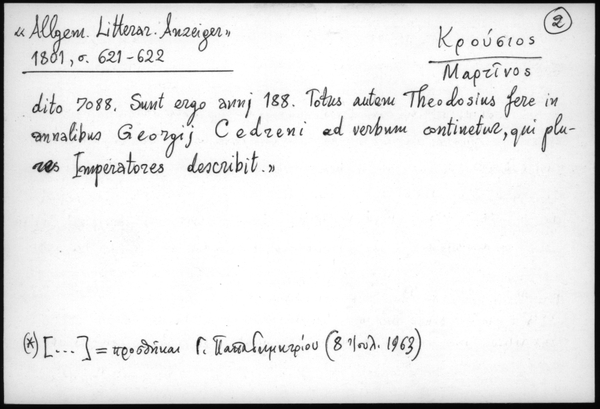 « Allgem. Litterar. Anzeiger »
1801, σ. 621-622
2
Κρούσιος
Μαρτῖνος
dito 7088. Sunt ergo annj 188. Totus autem Theodosius fere in
annalibus Georgij Cedreni ad verbum continetur, qui plu-
res Imperatores describit.»
(*) [...] = προσθῆκαι Γ. Παπαδημητρίου (8 Ἰουλ. 1963)